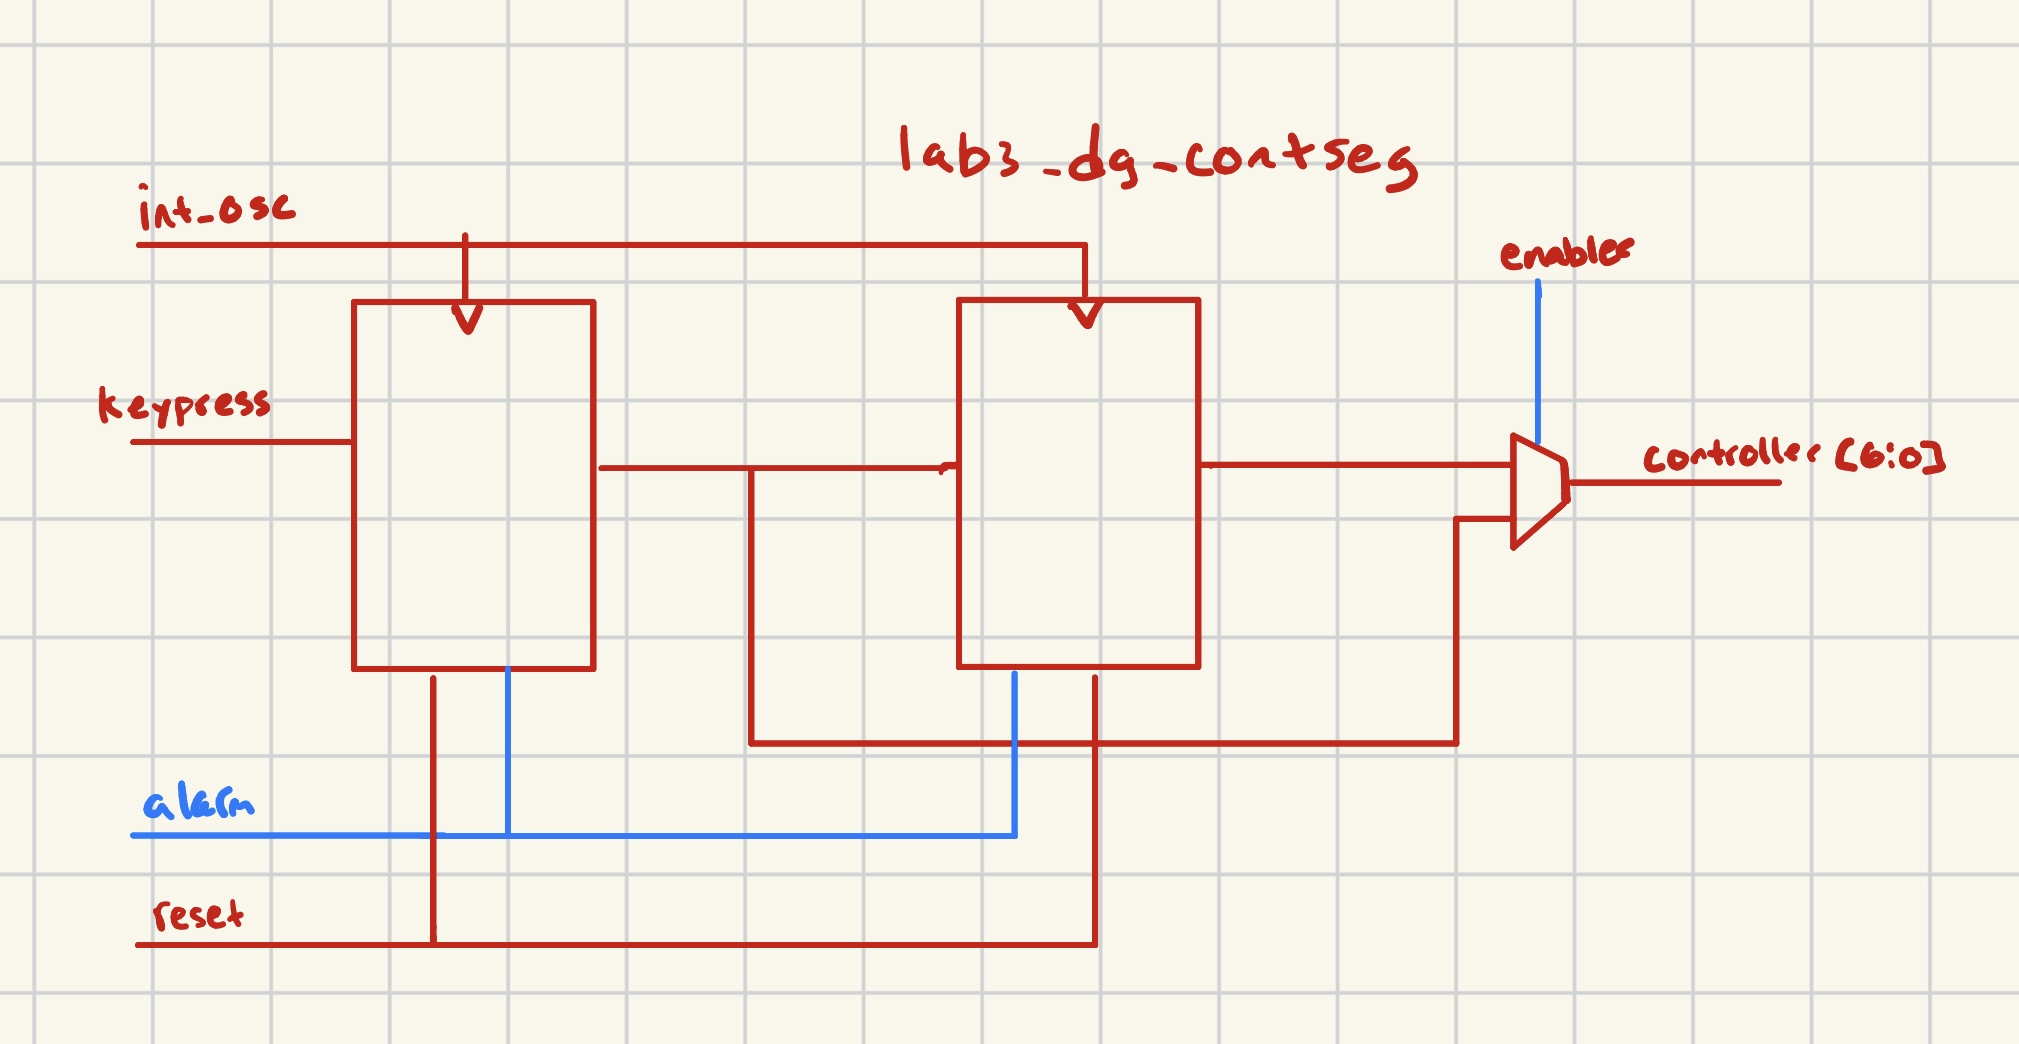 lab3_dg_contseg
int_osc
enables
keypress
controller [6:0]
alarm
reset